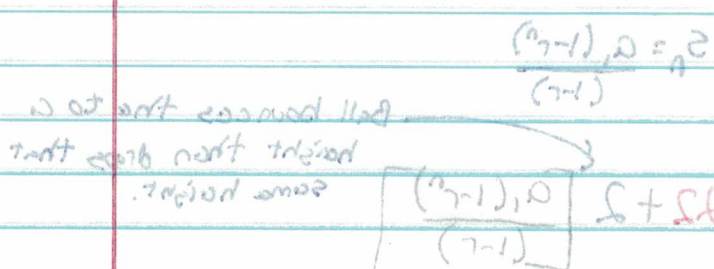 Sₙ = a₁(1-rⁿ)
(1-r)
Ball bounces to a
height then drops that
same height.
+ 2 [a₁(1-rⁿ)
(1-r)]